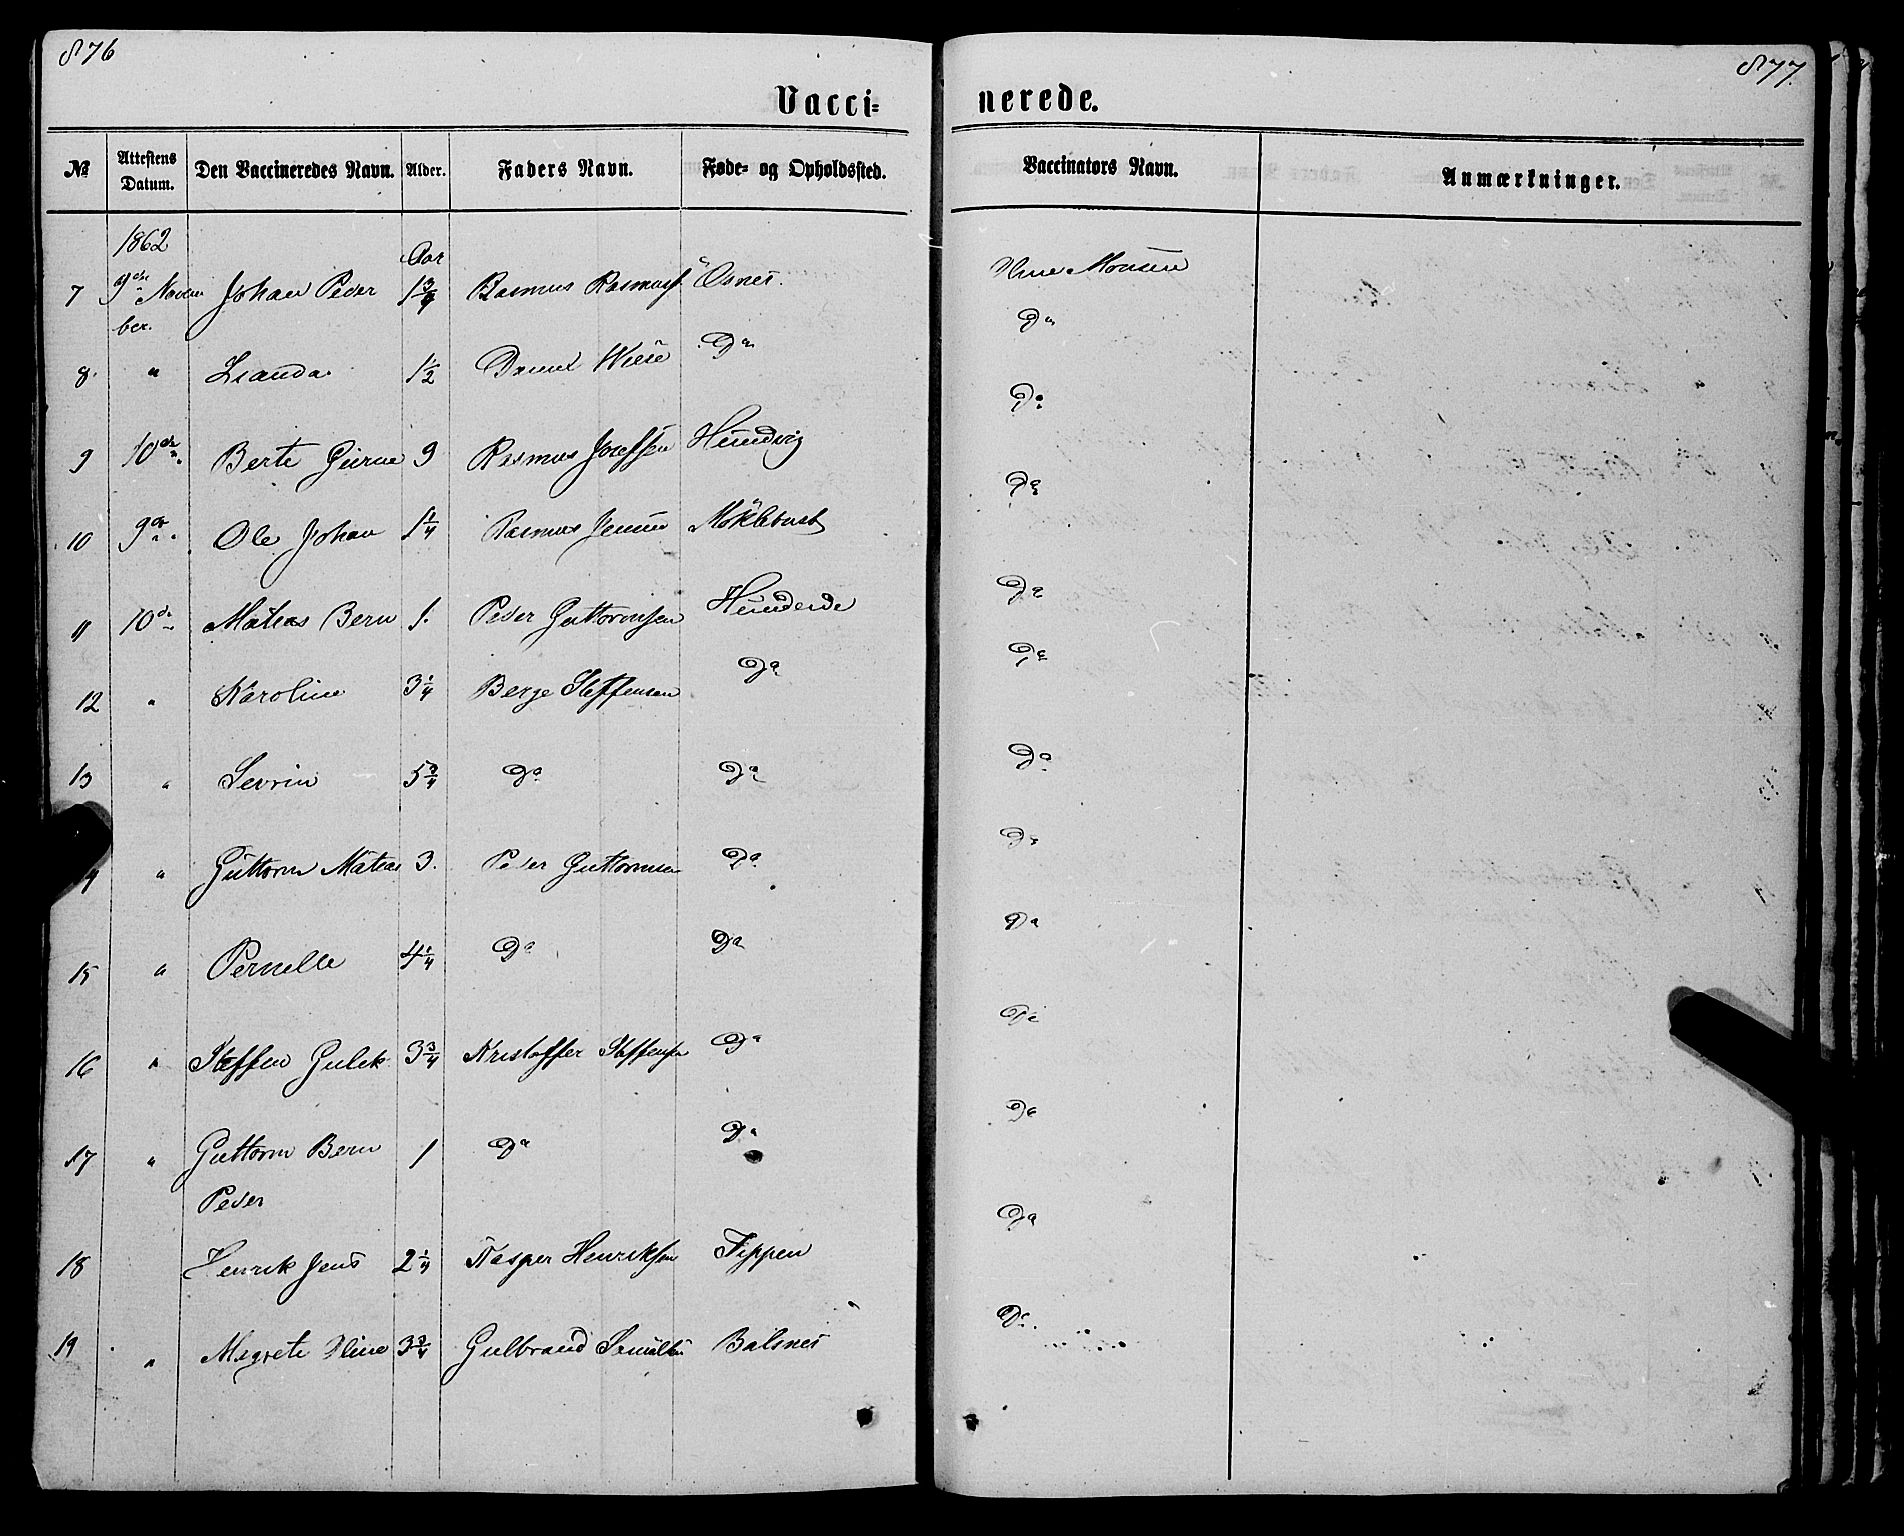 876
877.
Vacci- nerede.
№ Attestens Datum. Den Vaccineredes Navn. Alder. Faders Navn. Føde- og Opholdssted. Vaccinators Navn. Anmærkninger.
1862 Aar
7 9de Novem Johan Peder 1 3/4 Rasmus Rasmuss. Osnes. Monsen
ber.
8. " 1 1/2 Daniel Wiese Do Do
9 10de " Berte Gurine 9 Rasmus Josefsen Hundvig Do
10 9de " Ole Johan 1 1/4 Rasmus Jensen Møklebust Do
11 10de Mateas Bern 1. Peder Guttormsen Do
12 " Karoline 3 1/4 Berge Steffensen Do Do
13 " Sevrin 5 3/4 Do Do Do
4 " Guttorm Mateas 3. Peder Guttormsen Do Do
15 " Pernelle 4 1/4 Do Do Do
16 " Steffen Gulek 3 3/4 Kristoffer Steffensen Do Do
17 " Guttorm Bern 1 Do Do Do
Peder
18 Henrik Jens 2 1/4 Kasper Henriksen Do
19 " Magrete Oline 3 3/4 Gulbrand Balsnes Do.